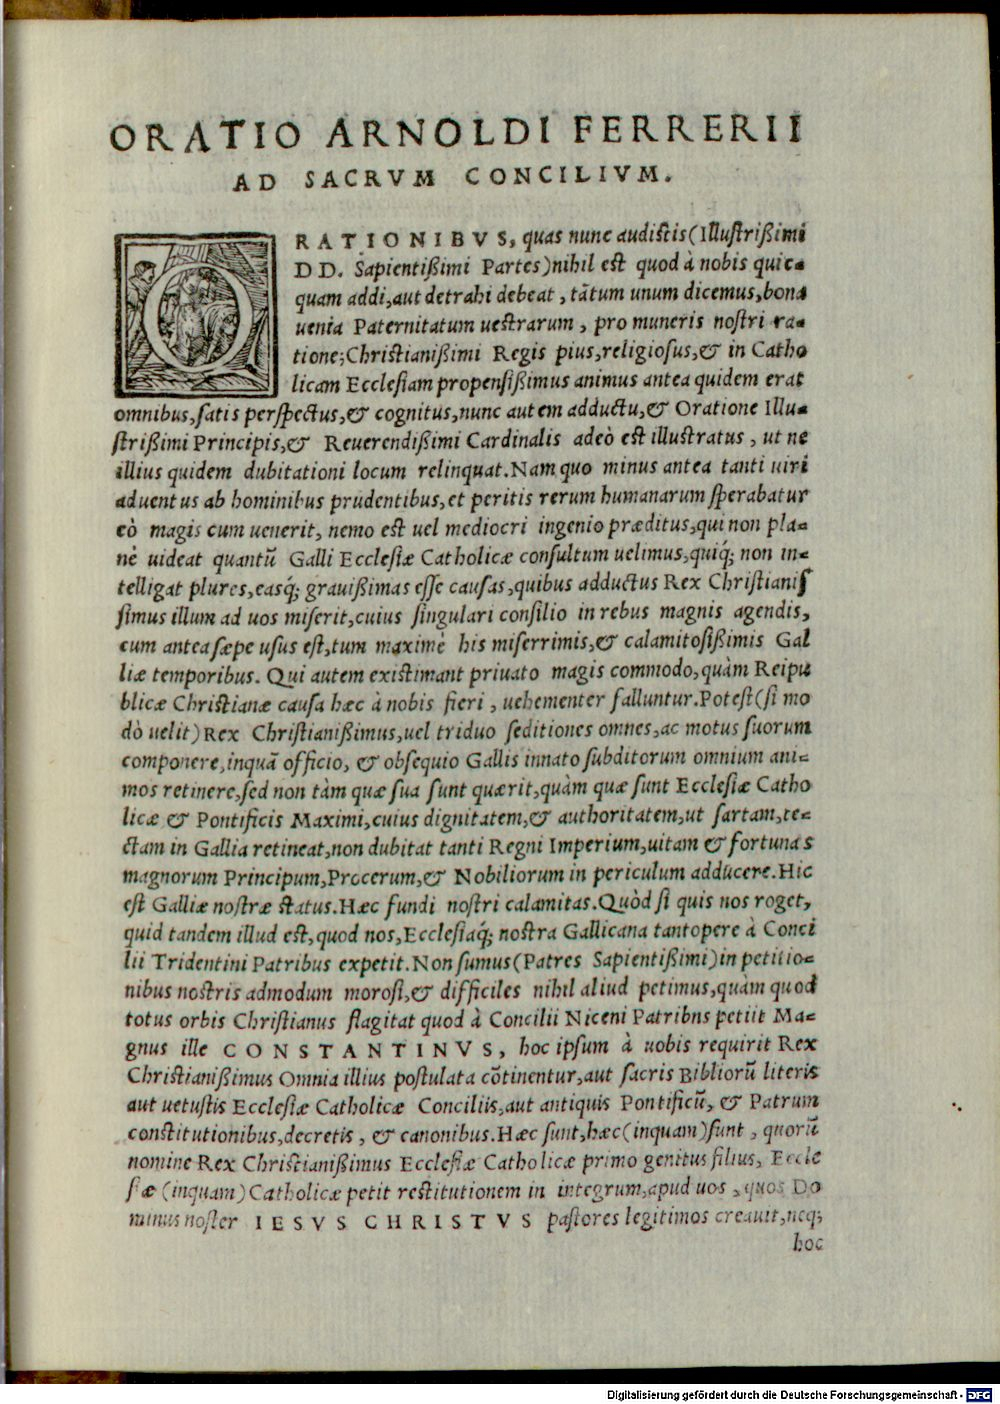 ORATIO ARNOLDI FERRERII
AD SACRVM CONCILIVM.
ORATIONIBVS, quas nunc audistis (Illustrißimi
DD. Sapientißimi Partes) nihil est quod à nobis quic-
quam addi, aut detrahi debeat, tãtum unum dicemus, bona
uenia Paternitatum uestrarum, pro muneris nostri ra-
tione; Christianißimi Regis pius, religiosus, & in Catho
licam Ecclesiam propensißimus animus antea quidem erat
omnibus, satis perspectus, & cognitus, nunc autem adductu, & Oratione Illu-
strißimi Principis, & Reuerendißimi Cardinalis adeò est illustratus, ut ne
illius quidem dubitationi locum relinquat. Nam quo minus antea tanti uiri
aduentus ab hominibus prudentibus, et peritis rerum humanarum sperabatur
eò magis cum uenerit, nemo est uel mediocri ingenio præditus, qui non pla-
nè uideat quantũ Galli Ecclesiæ Catholicæ consultum uelimus, quiq́; non in-
telligat plures, easq́; grauißimas esse causas, quibus adductus Rex Christianis
simus illum ad uos miserit, cuius singulari consilio in rebus magnis agendis,
cum antea sæpe usus est, tum maximè his miserrimis, & calamitosißimis Gal
liæ temporibus. Qui autem existimant priuato magis commodo, quàm Reipu
blicæ Christianæ causa hæc à nobis fieri, uehementer falluntur. Potest (si mo
dò uelit) Rex Christianißimus, uel triduo seditiones omnes, ac motus suorum
componere, inquã officio, & obsequio Gallis innato subditorum omnium ani-
mos retinere, sed non tàm quæ sua sunt quærit, quàm quæ sunt Ecclesiæ Catho
licæ & Pontificis Maximi, cuius dignitatem, & authoritatem, ut sartam, te-
ctam in Gallia retineat, non dubitat tanti Regni Imperium, uitam & fortunas
magnorum Principum, Procerum, & Nobiliorum in periculum adducere. Hic
est Galliæ nostræ status. Hæc fundi nostri calamitas. Quòd si quis nos roget,
quid tandem illud est, quod nos, Ecclesiaq́; nostra Gallicana tantopere à Conci
lii Tridentini Patribus expetit. Non sumus (Patres Sapientißimi) in petitio-
nibus nostris admodum morosi, & difficiles nihil aliud petimus, quàm quod
totus orbis Christianus flagitat quod à Concilii Niceni Patribns petiit Ma-
gnus ille CONSTANTINVS, hoc ipsum à uobis requirit Rex
Christianißimus Omnia illius postulata cõtinentur, aut sacris Bibliorũ literis
aut uetustis Ecclesiæ Catholicæ Conciliis, aut antiquis Pontificũ, & Patrum
constitutionibus, decretis, & canonibus. Hæc sunt, hæc (inquam) sunt, quorũ
nomine Rex Christianißimus Ecclesiæ Catholicæ primo genitus filius, Eccle
siæ (inquam) Catholicæ petit restitutionem in integrum, apud uos, quos Do
minus noster IESVS CHRISTVS pastores legitimos creauit, neq;
hoc
Digitalisierung gefördert durch die Deutsche Forschungsgemeinschaft - DFG